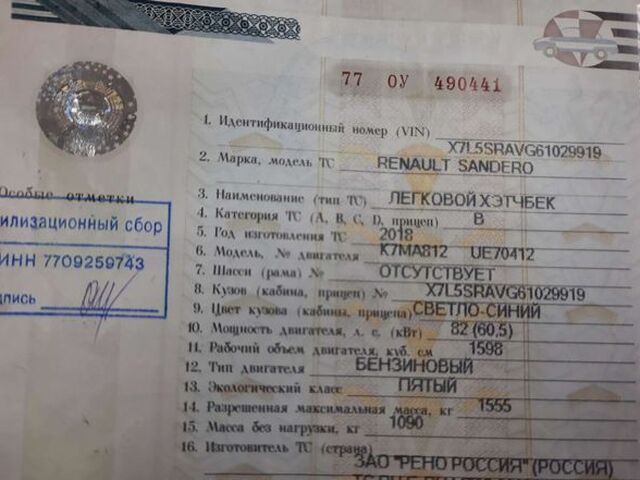 77 ОУ 490441
1. Идентификационный номер (VIN) X7L5SRAVG61029919
2. Марка, модель ТС RENAULT SANDERO
3. Наименование (тип ТС) ЛЕГКОВОЙ ХЭТЧБЕК
4. Категория ТС (A, B, C, D, прицеп) B
5. Год изготовления ТС 2018
6. Модель, № двигателя K7MA812 UE70412
7. Шасси (рама) № ОТСУТСТВУЕТ
8. Кузов (кабина, прицеп) № X7L5SRAVG61029919
9. Цвет кузова (кабины, прицепа) СВЕТЛО-СИНИЙ
10. Мощность двигателя, л. с. (кВт) 82 (60,5)
11. Рабочий объем двигателя, куб. см 1598
12. Тип двигателя БЕНЗИНОВЫЙ
13. Экологический класс ПЯТЫЙ
14. Разрешенная максимальная масса, кг 1555
15. Масса без нагрузки, кг 1090
16. Изготовитель ТС (страна)
ЗАО "РЕНО РОССИЯ" (РОССИЯ)
Особые отметки
илизационный сбор
ИНН 7709259743
дпись